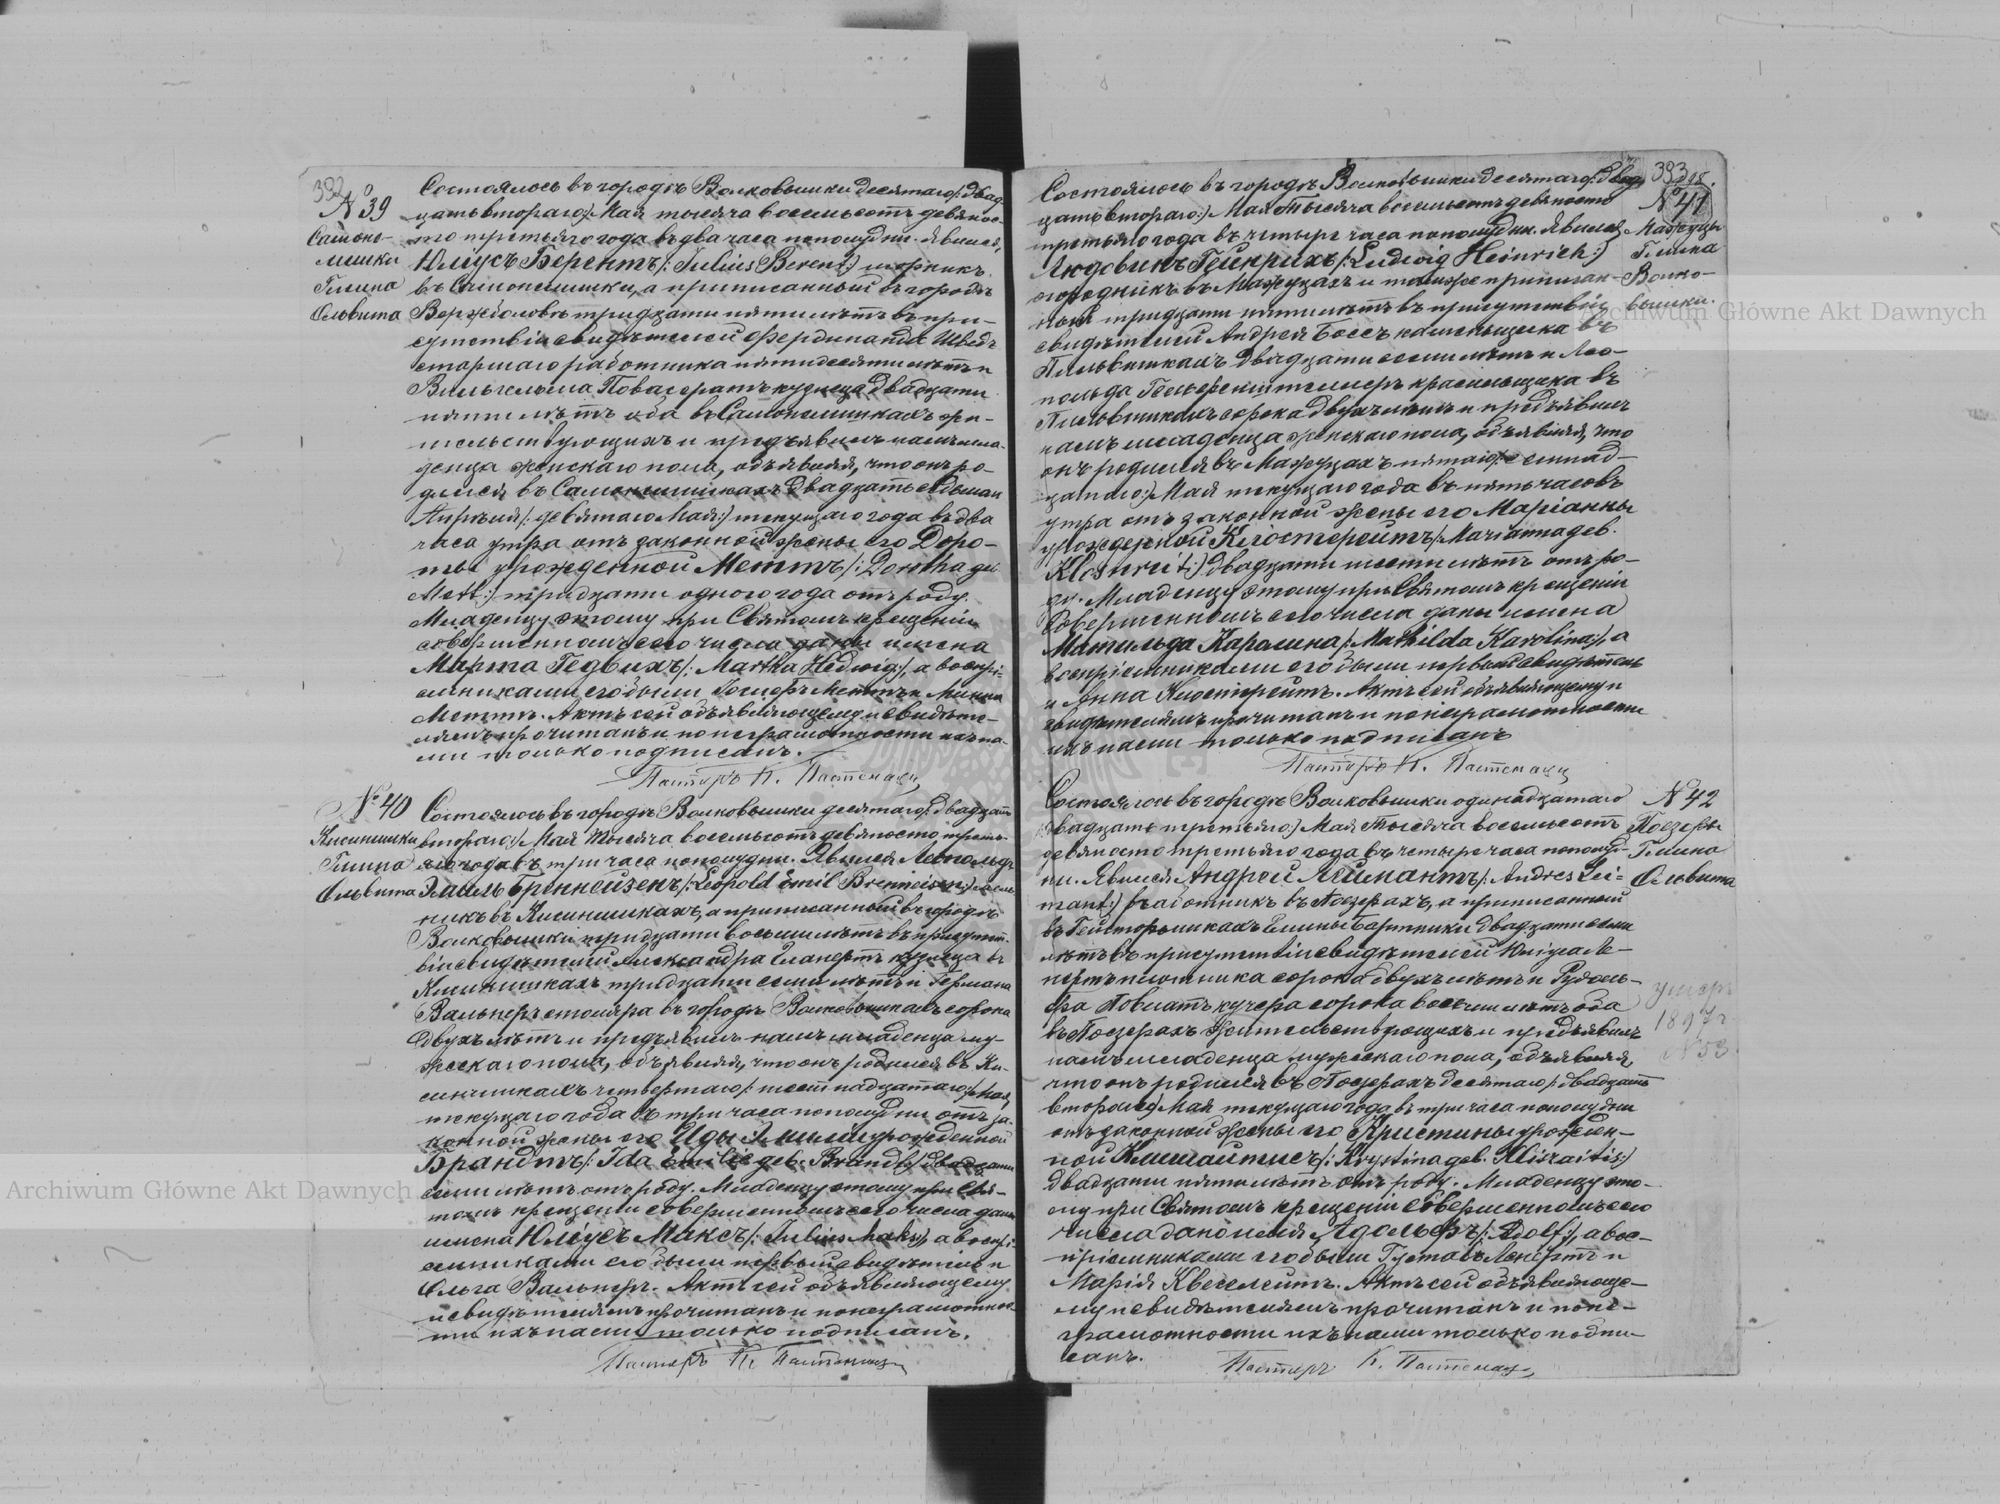 392
№ 39
Самоне-
лишки
Гмина
Ольвита
Состоялось въ городѣ Волковышки десятаго /: двад-
цать втораго :/ Мая тысяча восемьсотъ девянос-
то третьяго года въ два часа пополудни. Явился,
Юліусъ Берентъ /: Julius Berent :/
въ а приписанный въ городѣ
Вержболовѣ тридцати пяти лѣтъ въ при-
сутствіи свидѣтелей Фердинанда Шведъ
старшаго работника пятидесяти лѣтъ и
Вильгельма кузнеца двадцати
пяти лѣтъ оба въ жи-
тельствующихъ и предъявилъ намъ мла-
денца женскаго пола, объявляя, что онъ ро-
дился въ двадцать седьмаго
Апрѣля /: девятаго Мая :/ текущаго года въ два
часа утра отъ законной жены его Доро-
ты урожденной Меттъ /: Dorotha geb.
Mett :/ тридцати одного года отъ роду.
Младенцу этому при Святомъ крещеніи
совершенномъ сего числа даны имена
Марта Гедвихъ /: Martha Hedwig :/, а воспрі-
емниками его были Меттъ и Минна
Меттъ. Актъ сей объявляющему и свидѣте-
лямъ прочитанъ и по неграмотности ихъ на-
ми только подписанъ.
Пасторъ К. Пастенаци
№ 40
Гмина
Ольвита
Состоялось въ городѣ Волковышки десятаго /: двадцать
втораго :/ Мая тысяча восемьсотъ девяносто треть-
яго года въ три часа пополудни. Явился Леопольдъ
Эмиль Бреннейзенъ /: Leopold Emil Brenneisen :/
никъ въ а приписанный въ городѣ
Волковышки тридцати восьми лѣтъ въ присутст-
віи свидѣтелей Александра кузнеца въ
тридцати семи лѣтъ и Германа
Вальнеръ столяра въ городѣ Волковышкахъ сорока
двухъ лѣтъ и предъявилъ намъ младенца му-
жескаго пола, объявляя, что онъ родился въ Ки-
синишкахъ четвертаго /: шестнадцатаго :/ Мая
текущаго года въ три часа пополудни отъ за-
конной жены его Иды Эмиліи урожденной
Брандтъ /: Ida Emilie geb. Brandt :/ двадцати
семи лѣтъ отъ роду. Младенцу этому при Свя-
томъ крещеніи совершенномъ сего числа даны
имена Юліусъ Максъ /: Julius Maks :/, а воспрі-
емниками его были первый свидѣтель и
Ольга Вальнеръ. Актъ сей объявляющему
и свидѣтелямъ прочитанъ и по неграмотнос-
ти ихъ нами только подписанъ.
Пасторъ К. Пастенаци
393
№ 41
Мажуцы
Гмина
Волко-
вышки.
Состоялось въ городѣ Волковышки десятаго /: двад-
цать втораго :/ Мая тысяча восемьсотъ девяносто
третьяго года въ четыре часа пополудни. Явился
Людовикъ Гейнрихъ /: Ludwig Heinrich :/
огородникъ въ Мажуцахъ и тамже приписан-
ный тридцати пяти лѣтъ въ присутствіи
свидѣтелей Андрея Боссъ каменьщика въ
Пильвишкахъ двадцати семи лѣтъ и Лео-
польда красильщика въ
Пильвишкахъ сорока двухъ лѣтъ и предъявилъ
намъ младенца женскаго пола, объявляя, что
онъ родился въ Мажуцахъ пятаго /: семнад-
цатаго :/ Мая текущаго года въ пять часовъ
утра отъ законной жены его Маріанны
урожденной Клостерейтъ /: Marianna geb.
двадцати шести лѣтъ отъ ро-
ду. Младенцу этому при Святомъ крещеніи
совершенномъ сего числа даны имена
Матильда Каролина /: Mathilda Karolina :/, а
воспріемниками его были первый свидѣтель
и Анна Клостерейтъ. Актъ сей объявляющему и
свидѣтелямъ прочитанъ и по неграмотности
ихъ нами только подписанъ
Пасторъ К. Пастенаци
№ 42
Поезеры
Гмина
Ольвита
умеръ
1897 г.
№ 53.
Состоялось въ городѣ Волковышки одинадцатаго
/: двадцать третьяго :/ Мая тысяча восемьсотъ
девяносто третьяго года въ четыре часа пополуд-
ни. Явился Андрей Леймантъ /: Andres Lei-
mant :/ работникъ въ Поезерахъ, а приписанный
въ Гмины Бартники двадцати семи
лѣтъ въ присутствіи свидѣтелей
плотника сорока двухъ лѣтъ и Рудоль-
фа кучера сорока восьми лѣтъ оба
въ Поезерахъ жительствующихъ и предъявилъ
намъ младенца мужескаго пола, объявляя,
что онъ родился въ Поезерахъ десятаго /: двадцать
втораго :/ Мая текущаго года въ три часа пополудни
отъ законной жены его Кристины урожден-
ной Климайтисъ
двадцати пяти лѣтъ отъ роду. Младенцу это-
му при Святомъ крещеніи совершенномъ сего
числа дано имя Адольфъ /: Adolf :/, а вос-
пріемниками его были Густавъ и
Марія Актъ сей объявляюще-
му и свидѣтелямъ прочитанъ и по не-
грамотности ихъ нами только подпи-
санъ.
Пасторъ К. Пастенаци
Archiwum Główne Akt Dawnych
Archiwum Główne Akt Dawnych